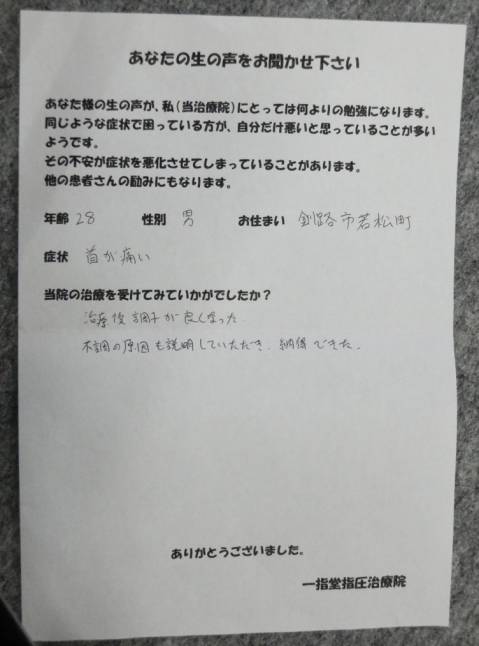 あなたの生の声をお聞かせ下さい
あなた様の生の声が、私（当治療院）にとっては何よりの勉強になります。
同じような症状で困っている方が、自分だけ悪いと思っていることが多い
ようです。
その不安が症状を悪化させてしまっていることがあります。
他の患者さんの励みにもなります。
年齢 28 性別 男 お住まい 釧路市若松町
症状 首が痛い
当院の治療を受けてみていかがでしたか？
治療後調子が良くなった
不調の原因も説明していただき、納得できた。
ありがとうございました。
一指堂指圧治療院